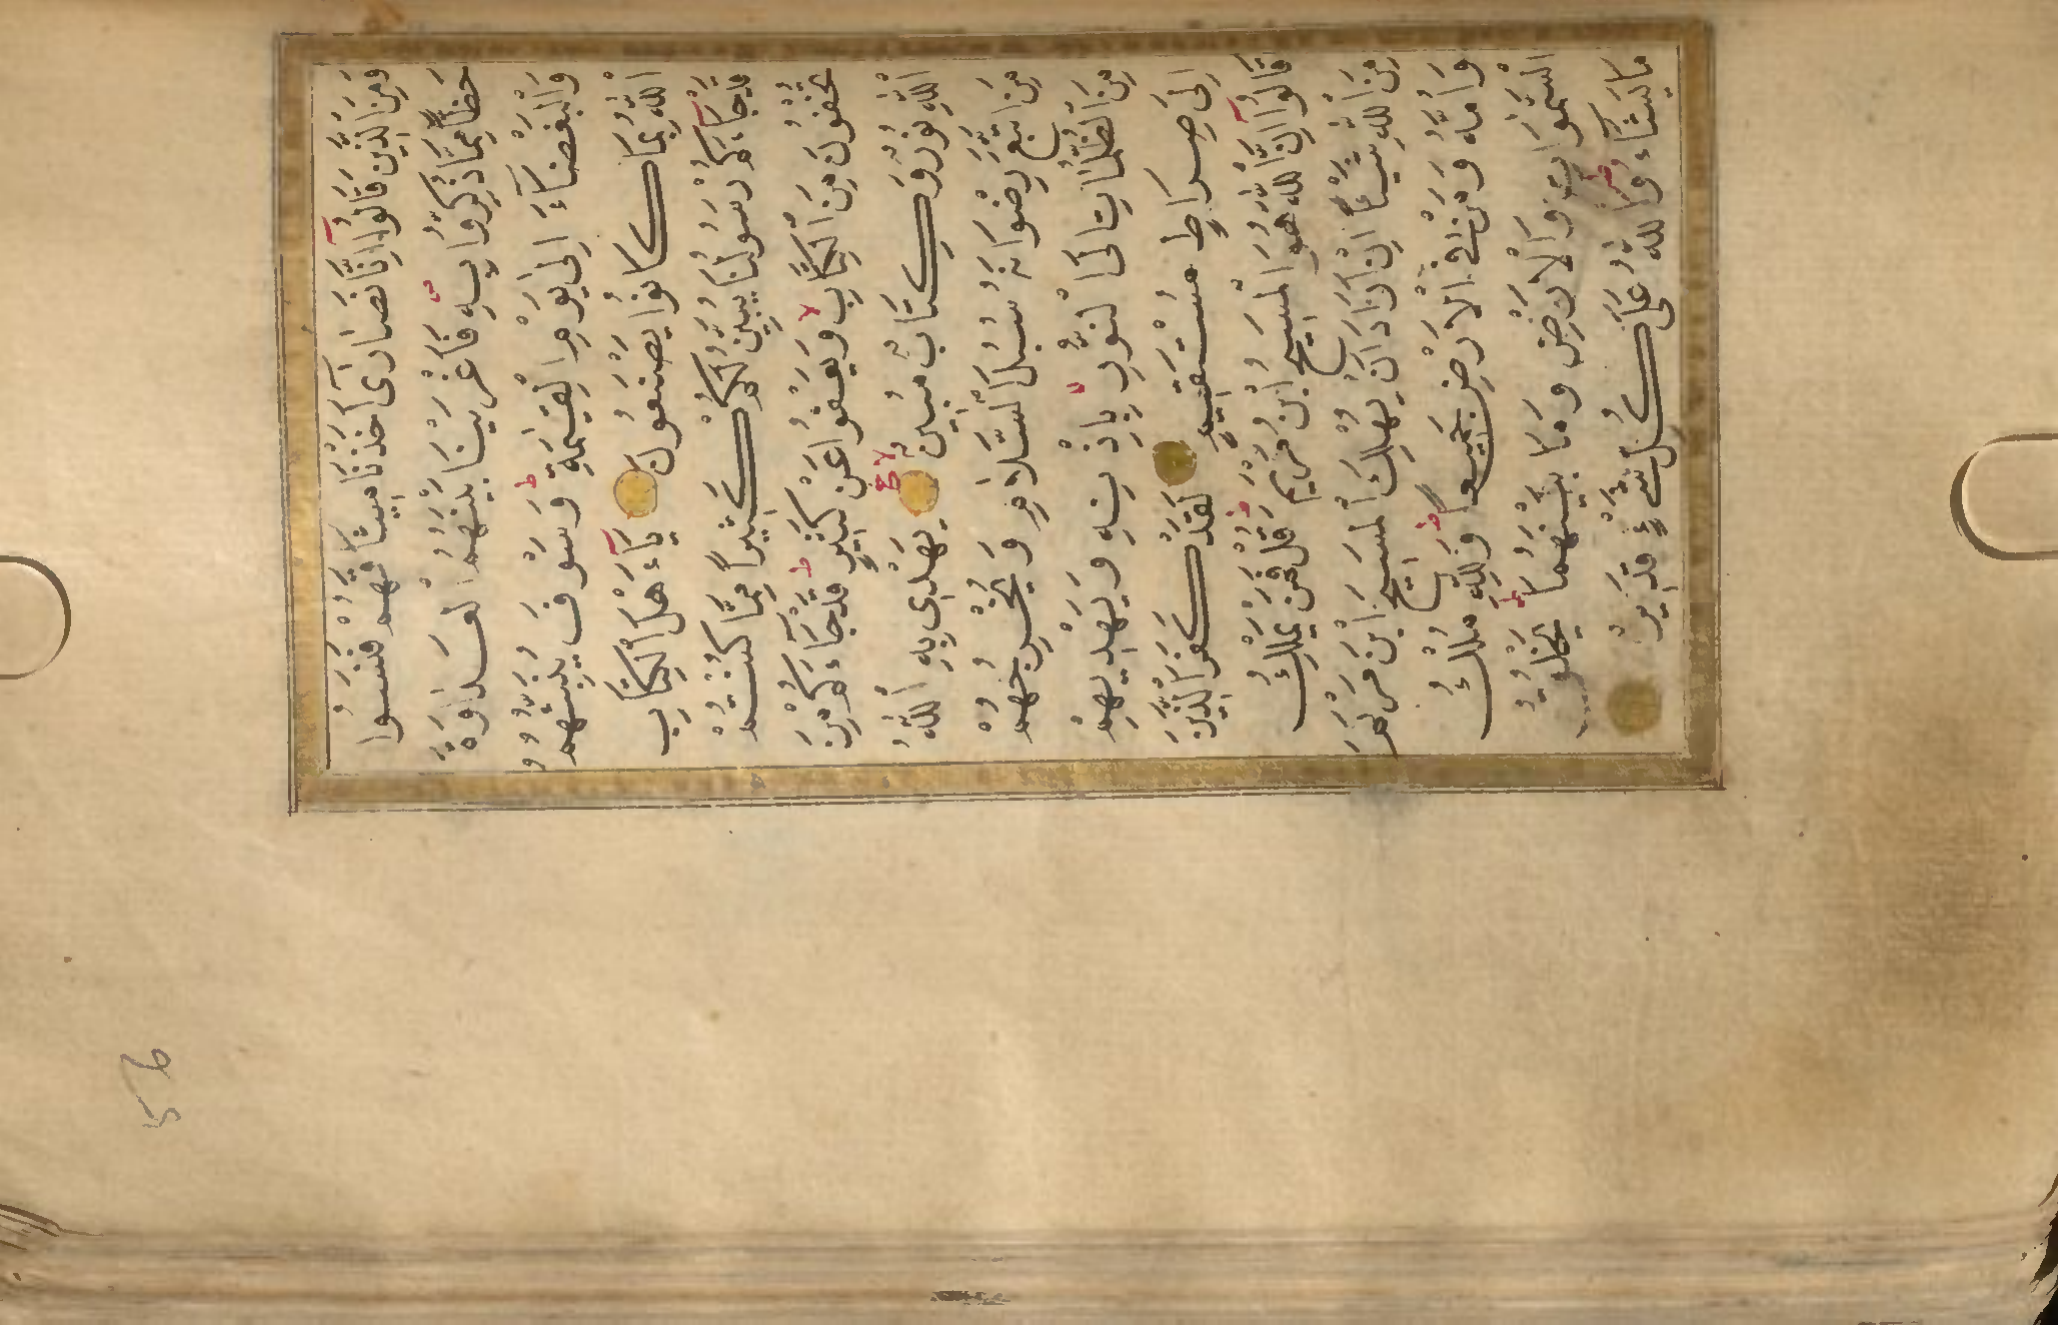 وَمِنَ الَّذِينَ قَالُوا إِنَّا نَصَارَى أَخَذْنَا مِيثَاقَهُمْ فَنَسُوا
حَظًّا مِمَّا ذُكِّرُوا بِهِ فَأَغْرَيْنَا بَيْنَهُمُ الْعَدَاوَةَ
وَالْبَغْضَاءَ إِلَى يَوْمِ الْقِيٰمَةِ وَسَوْفَ يُنَبِّئُهُمُ
اللّٰهُ بِمَا كَانُوا يَصْنَعُونَ يَا أَهْلَ الْكِتَابِ
قَدْ جَاءَكُمْ رَسُولُنَا يُبَيِّنُ لَكُمْ كَثِيرًا مِمَّا كُنْتُمْ
تُخْفُونَ مِنَ الْكِتَابِ وَيَعْفُوا عَنْ كَثِيرٍ قَدْ جَاءَكُمْ مِنَ
اللّٰهِ نُورٌ وَكِتَابٌ مُبِينٌ يَهْدِي بِهِ اللّٰهُ
مَنِ اتَّبَعَ رِضْوَانَهُ سُبُلَ السَّلَامِ وَيُخْرِجُهُمْ
مِنَ الظُّلُمَاتِ إِلَى النُّورِ بِإِذْنِهِ وَيَهْدِيهِمْ
إِلَى صِرَاطٍ مُسْتَقِيمٍ لَقَدْ كَفَرَ الَّذِينَ
قَالُوا إِنَّ اللّٰهَ هُوَ الْمَسِيحُ ابْنُ مَرْيَمَ قُلْ فَمَنْ يَمْلِكُ
مِنَ اللّٰهِ شَيْئًا إِنْ أَرَادَ أَنْ يُهْلِكَ الْمَسِيحَ ابْنَ مَرْيَمَ
وَأُمَّهُ وَمَنْ فِي الْأَرْضِ جَمِيعًا وَلِلّٰهِ مُلْكُ
السَّمٰوَاتِ وَالْأَرْضِ وَمَا بَيْنَهُمَا يَخْلُقُ
مَا يَشَاءُ وَاللّٰهُ عَلَى كُلِّ شَيْءٍ قَدِيرٌ